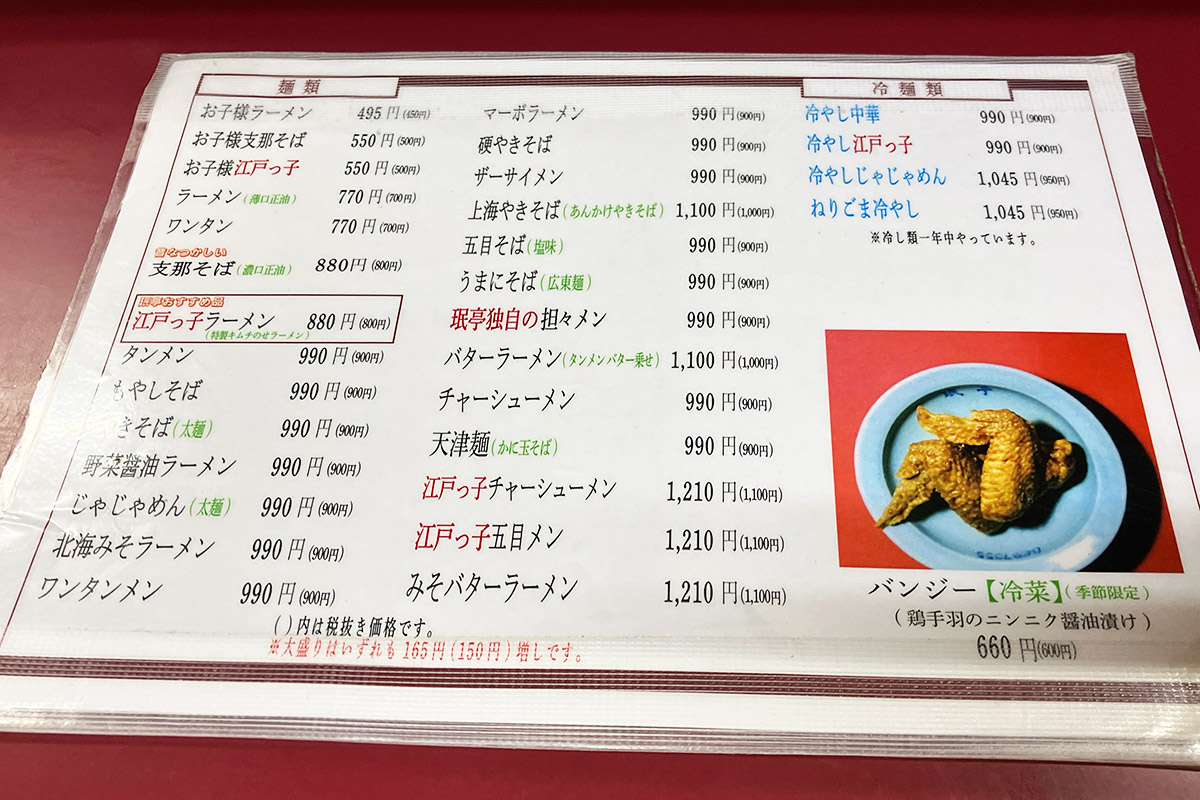 麺類
お子様ラーメン 495円(450円)
お子様支那そば 550円(500円)
お子様江戸っ子 550円(500円)
ラーメン(薄口正油) 770円(700円)
ワンタン 770円(700円)
昔なつかしい
支那そば(濃口正油) 880円(800円)
珉亭おすすめ品
江戸っ子ラーメン 880円(800円)
(特製キムチのせラーメン)
タンメン 990円(900円)
もやしそば 990円(900円)
きそば(太麺) 990円(900円)
野菜醤油ラーメン 990円(900円)
じゃじゃめん(太麺) 990円(900円)
北海みそラーメン 990円(900円)
ワンタンメン 990円(900円)
マーボラーメン 990円(900円)
硬やきそば 990円(900円)
ザーサイメン 990円(900円)
上海やきそば(あんかけやきそば) 1,100円(1,000円)
五目そば(塩味) 990円(900円)
うまにそば(広東麺) 990円(900円)
珉亭独自の担々メン 990円(900円)
バターラーメン(タンメンバター乗せ) 1,100円(1,000円)
チャーシューメン 990円(900円)
天津麺(かに玉そば) 990円(900円)
江戸っ子チャーシューメン 1,210円(1,100円)
江戸っ子五目メン 1,210円(1,100円)
みそバターラーメン 1,210円(1,100円)
( )内は税抜き価格です。
※大盛りはいずれも165円(150円)増しです。
冷麺類
冷やし中華 990円(900円)
冷やし江戸っ子 990円(900円)
冷やしじゃじゃめん 1,045円(950円)
ねりごま冷やし 1,045円(950円)
※冷し類一年中やっています。
バンジー【冷菜】(季節限定)
(鶏手羽のニンニク醤油漬け)
660円(600円)